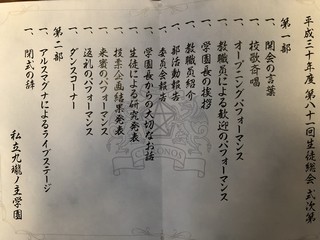 平成三十年度 第八十一回生徒総会 式次第
第一部
一、開会の言葉
一、校歌斉唱
一、オープニングパフォーマンス
一、教職員による歓迎のパフォーマンス
一、学園長の挨拶
一、教職員紹介
一、部活動報告
一、委員会報告
一、学園長からの大切なお話
一、生徒による研究発表
一、投票企画結果発表
一、来賓のパフォーマンス
一、返礼のパフォーマンス
一、ダンスコーナー
第二部
一、アルスマグナによるライブステージ
一、閉式の辞
私立九瓏ノ主学園
CRONOS